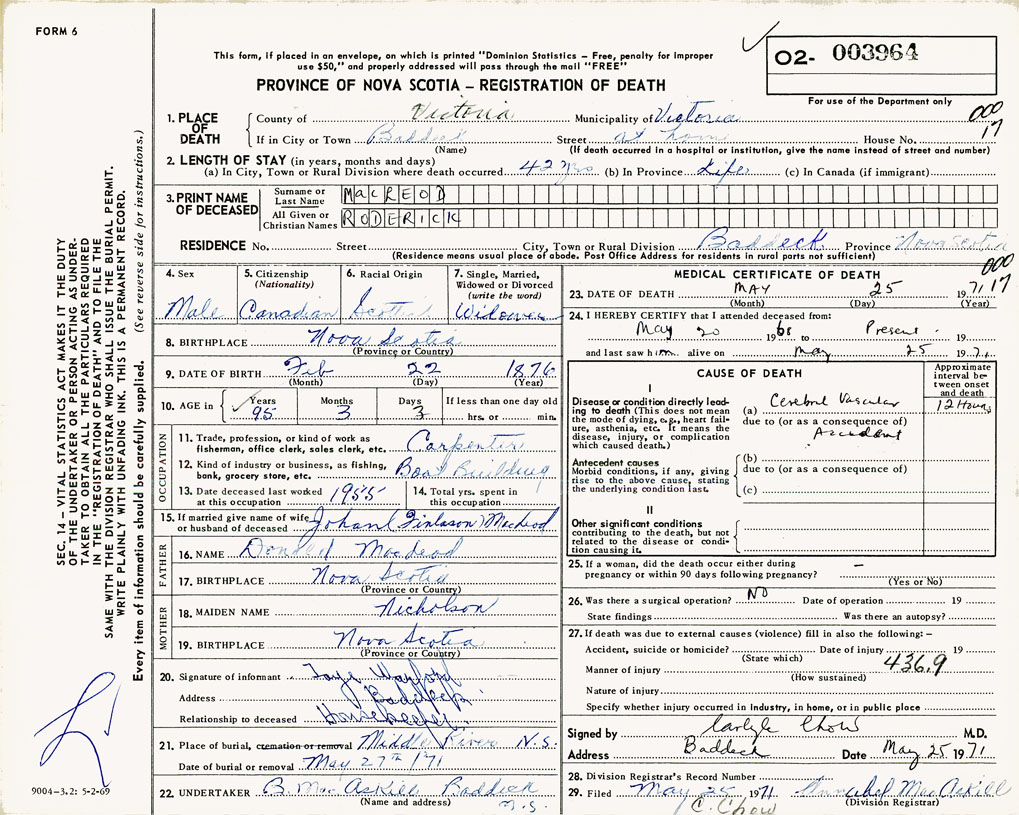 FORM 6
This form, if placed in an envelope, on which is printed "Dominion Statistics – Free, penalty for improper
use $50," and properly addressed will pass through the mail "FREE"
02- 003964
PROVINCE OF NOVA SCOTIA – REGISTRATION OF DEATH
For use of the Department only
000
17
1. PLACE OF DEATH
County of Victoria Municipality of Victoria
If in City or Town Baddeck Street at home House No.
(Name) (If death occurred in a hospital or institution, give the name instead of street and number)
2. LENGTH OF STAY (in years, months and days)
(a) In City, Town or Rural Division where death occurred 42 yrs (b) In Province Life (c) In Canada (if immigrant)
3. PRINT NAME OF DECEASED
Surname or Last Name MacLEOD
All Given or Christian Names RODERICK
RESIDENCE No. Street City, Town or Rural Division Baddeck Province Nova Scotia
(Residence means usual place of abode. Post Office Address for residents in rural parts not sufficient)
4. Sex Male
5. Citizenship (Nationality) Canadian
6. Racial Origin
7. Single, Married, Widowed or Divorced (write the word) Widower
8. BIRTHPLACE Nova Scotia
(Province or Country)
9. DATE OF BIRTH Feb 22 1876
(Month) (Day) (Year)
10. AGE in Years 95 Months 3 Days 3 If less than one day old
hrs. or min.
OCCUPATION
11. Trade, profession, or kind of work as
fisherman, office clerk, sales clerk, etc. Carpenter
12. Kind of industry or business, as fishing,
bank, grocery store, etc. Boat Building
13. Date deceased last worked
at this occupation 1955
14. Total yrs. spent in
this occupation
15. If married give name of wife
or husband of deceased (Finlason) Macleod
FATHER
16. NAME Donald Macleod
17. BIRTHPLACE Nova Scotia
(Province or Country)
MOTHER
18. MAIDEN NAME Nicholson
19. BIRTHPLACE Nova Scotia
(Province or Country)
20. Signature of informant
Address Baddeck
Relationship to deceased Housekeeper
21. Place of burial, cremation or removal Middle River N.S.
Date of burial or removal May 27th 1971
22. UNDERTAKER B. MacAskill Baddeck
(Name and address) N.S.
MEDICAL CERTIFICATE OF DEATH
000
17
23. DATE OF DEATH MAY 25 1971
(Month) (Day) (Year)
24. I HEREBY CERTIFY that I attended deceased from:
May 20 1968 to Present 19
and last saw him alive on May 25 1971
CAUSE OF DEATH
Approximate interval between onset and death
I
Disease or condition directly leading
to death (This does not mean
the mode of dying, e.g., heart failure,
asthenia, etc. It means the
disease, injury, or complication
which caused death.)
(a) Cerebral Vascular 12 Hours
due to (or as a consequence of)
Accident
Antecedent causes
Morbid conditions, if any, giving
rise to the above cause, stating
the underlying condition last.
(b)
due to (or as a consequence of)
(c)
II
Other significant conditions
contributing to the death, but not
related to the disease or condition
causing it.
25. If a woman, did the death occur either during
pregnancy or within 90 days following pregnancy? –
(Yes or No)
26. Was there a surgical operation? NO Date of operation 19
State findings Was there an autopsy?
27. If death was due to external causes (violence) fill in also the following: –
Accident, suicide or homicide? Date of injury 19
(State which)
Manner of injury 436.9
(How sustained)
Nature of injury
Specify whether injury occurred in industry, in home, or in public place
Signed by Carlyle Chow M.D.
Address Baddeck Date May 25 1971
28. Division Registrar's Record Number
29. Filed May 25 1971 Annabel MacAskill
C. Chow (Division Registrar)
SEC. 14 – VITAL STATISTICS ACT MAKES IT THE DUTY
OF THE UNDERTAKER OR PERSON ACTING AS UNDER-
TAKER TO OBTAIN ALL THE PARTICULARS REQUIRED
IN THE "REGISTRATION OF DEATH" AND TO FILE THE
SAME WITH THE DIVISION REGISTRAR WHO SHALL ISSUE THE BURIAL PERMIT.
WRITE PLAINLY WITH UNFADING INK. THIS IS A PERMANENT RECORD.
Every item of information should be carefully supplied. (See reverse side for instructions.)
9004–3.2: 5-2-69